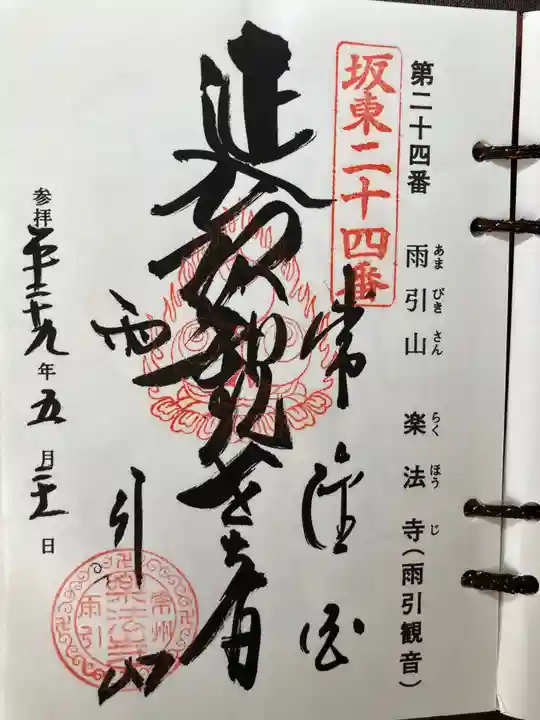 第二十四番 雨引山 楽法寺(雨引観音)
あまびきさん らくほうじ
坂東二十四番
常陸国
延命観世音
雨引山
常州
楽法寺
雨引
参拝 平成二十九年五月二十一日